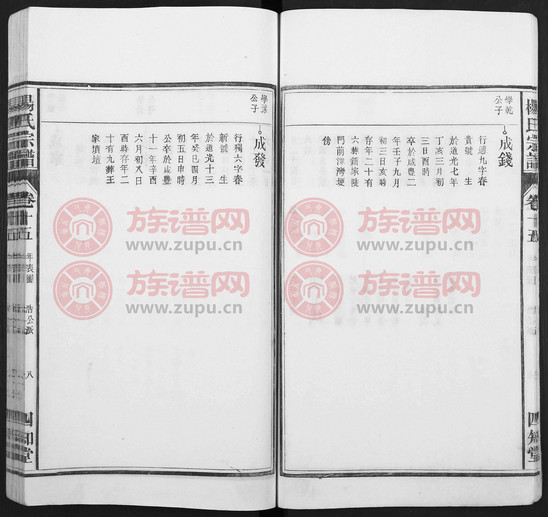 楊氏宗譜
卷十五
四知堂
學乾公子
成錢
行適九字春
貴號 生
於道光七年
丁亥三月初
三日酉時
卒於咸豐二
年壬子九月
初三日亥時
存年二十有
六葬
門前洋灣埂
傍
學源公子
成發
行獨六字春
新號 生
於道光十三
年癸巳四月
初五日申時
公卒於咸豐
十一年辛酉
六月初八日
酉時存年二
十有九葬王
家墳埴
楊氏宗譜
卷十五
年表圖
浩公派
八
四知堂
族谱网
www.zupu.cn
族谱网
www.zupu.cn
族谱网
www.zupu.cn
族谱网
www.zupu.cn